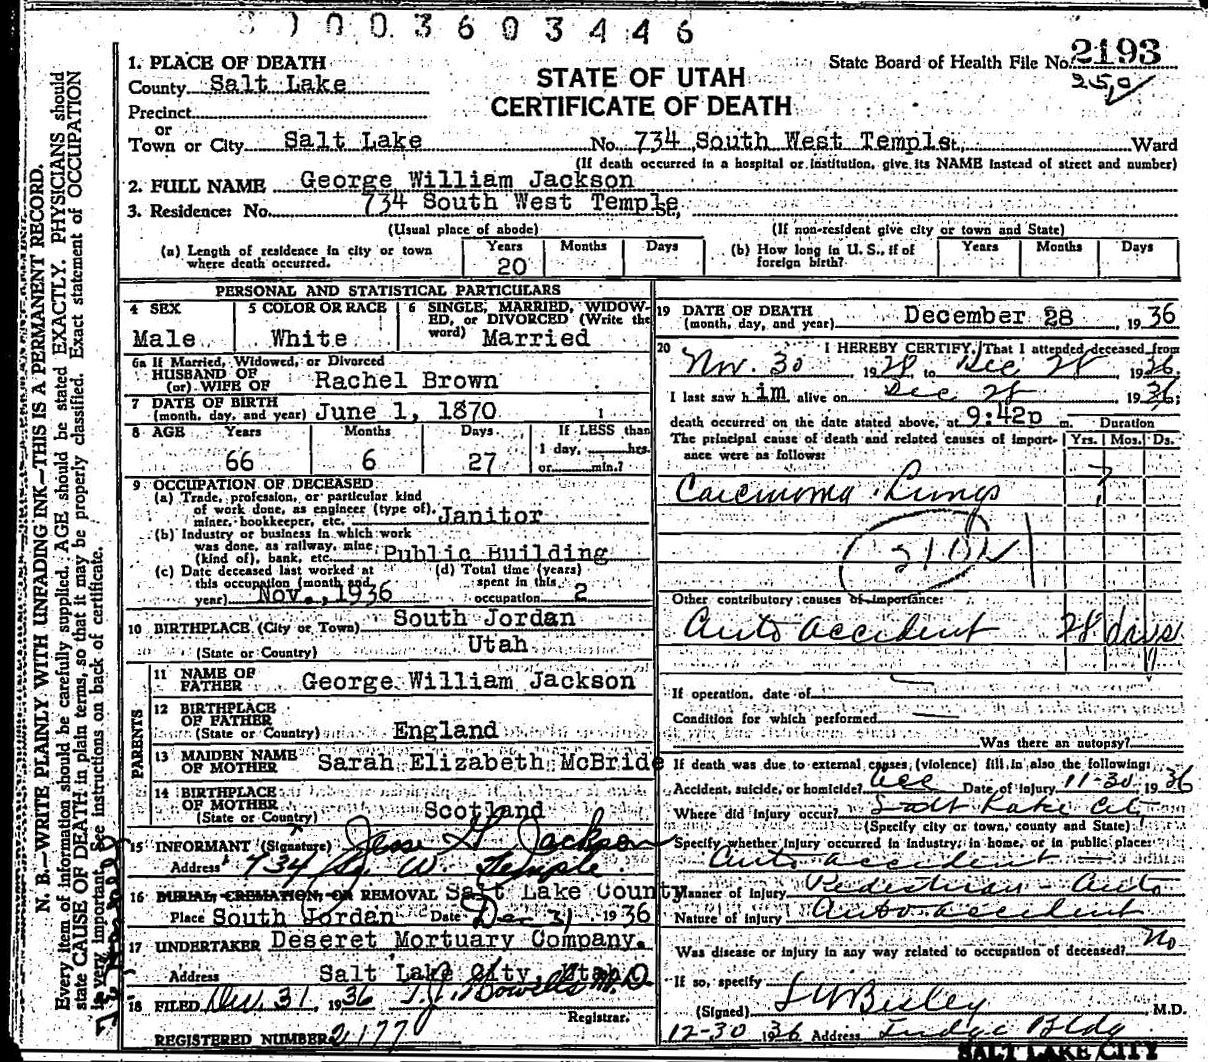 3603446
1. PLACE OF DEATH
County Salt Lake
Precinct
or
Town or City Salt Lake No. 734 South West Temple St. Ward
(If death occurred in a hospital or institution, give its NAME instead of street and number)
STATE OF UTAH
CERTIFICATE OF DEATH
State Board of Health File No. 2193
250
2. FULL NAME George William Jackson
3. Residence: No. 734 South West Temple St.
(Usual place of abode) (If non-resident give city or town and State)
(a) Length of residence in city or town where death occurred. Years 20 Months Days
(b) How long in U. S., if of foreign birth? Years Months Days
PERSONAL AND STATISTICAL PARTICULARS
4 SEX Male
5 COLOR OR RACE White
6 SINGLE, MARRIED, WIDOW-
ED, or DIVORCED (Write the
word) Married
6a If Married, Widowed, or Divorced
HUSBAND OF
(or) WIFE OF Rachel Brown
7 DATE OF BIRTH
(month, day, and year) June 1, 1870
8 AGE Years Months Days If LESS than
1 day, hrs.
66 6 27 or min.?
9 OCCUPATION OF DECEASED
(a) Trade, profession, or particular kind
of work done, as engineer (type of),
miner, bookkeeper, etc. Janitor
(b) Industry or business in which work
was done, as railway, mine
(kind of), bank, etc. Public Building
(c) Date deceased last worked at
this occupation (month and
year) Nov., 1936
(d) Total time (years)
spent in this
occupation 2
10 BIRTHPLACE (City or Town) South Jordan
(State or Country) Utah
PARENTS
11 NAME OF
FATHER George William Jackson
12 BIRTHPLACE
OF FATHER
(State or Country) England
13 MAIDEN NAME
OF MOTHER Sarah Elizabeth McBride
14 BIRTHPLACE
OF MOTHER
(State or Country) Scotland
15 INFORMANT (Signature) Jesse G. Jackson
Address 734 So. W. Temple
16 BURIAL, CREMATION, OR REMOVAL Salt Lake County
Place South Jordan Date Dec 31, 1936
17 UNDERTAKER Deseret Mortuary Company.
Address Salt Lake City, Utah
18 FILED Dec. 31, 1936 T.J. Howells M.D.
Registrar.
REGISTERED NUMBER 2177
19 DATE OF DEATH
(month, day, and year) December 28, 1936
20 I HEREBY CERTIFY, That I attended deceased from
Nov. 30 1928, to Dec 28 1936,
I last saw him alive on Dec 28 1936;
death occurred on the date stated above, at 9:42p m. Duration
The principal cause of death and related causes of import-
ance were as follows: Yrs. Mos. Ds.
Carcinoma Lungs ?
Other contributory causes of importance:
Auto accident 28 days
If operation, date of
Condition for which performed
Was there an autopsy?
If death was due to external causes (violence) fill in also the following:
Accident, suicide, or homicide? Acc Date of Injury 11-30, 1936
Where did injury occur? Salt Lake City
(Specify city or town, county and State)
Specify whether injury occurred in industry, in home, or in public place:
Auto accident
Manner of Injury Pedestrian - Auto
Nature of injury Auto accident
Was disease or injury in any way related to occupation of deceased? No
If so, specify
(Signed) M.D.
12-30 1936 Address Judge Bldg
SALT LAKE CITY
N. B.—WRITE PLAINLY WITH UNFADING INK—THIS IS A PERMANENT RECORD.
Every item of information should be carefully supplied. AGE should be stated EXACTLY. PHYSICIANS should
state CAUSE OF DEATH in plain terms, so that it may be properly classified. Exact statement of OCCUPATION
is very important. See instructions on back of certificate.